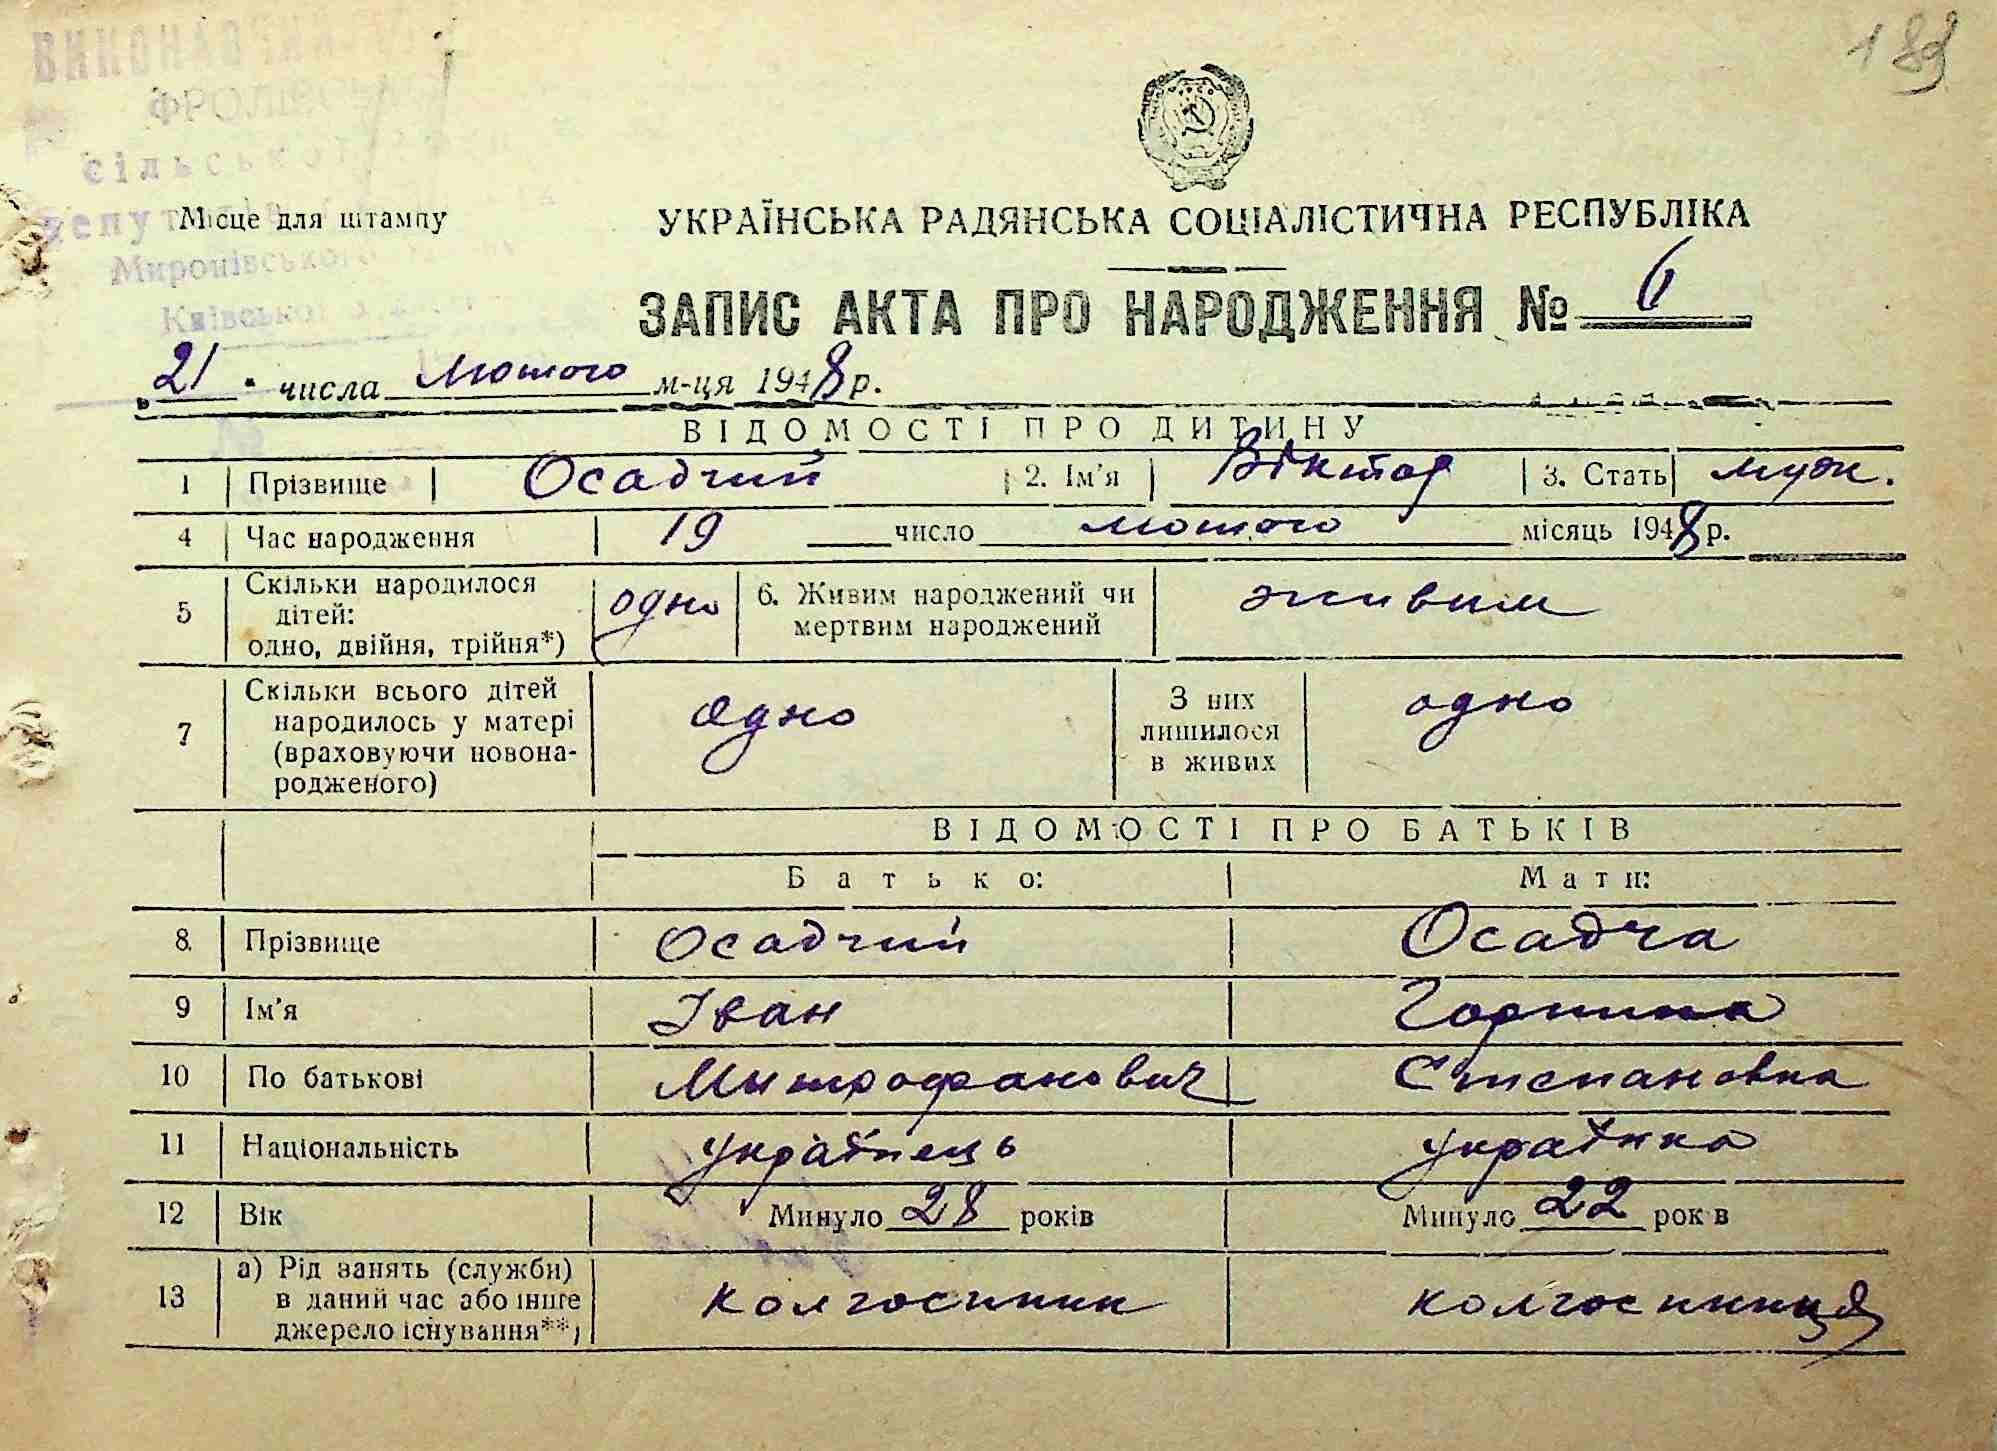 189
ВИКОНАВЧИЙ
ФРОЛІВСЬКОЇ
сільської
депутатів
Місце для штампу
Миронівського
Київської
УКРАЇНСЬКА РАДЯНСЬКА СОЦІАЛІСТИЧНА РЕСПУБЛІКА
ЗАПИС АКТА ПРО НАРОДЖЕННЯ № 6
„21" числа лютого м-ця 1948 р.
ВІДОМОСТІ ПРО ДИТИНУ
1 Прізвище Осадчий 2. Ім'я Віктор 3. Стать муж.
4 Час народження 19 число лютого місяць 1948 р.
5 Скільки народилося дітей: одно, двійня, трійня*) одно 6. Живим народжений чи мертвим народжений живим
7 Скільки всього дітей народилось у матері (враховуючи новонародженого) одно З них лишилося в живих одно
ВІДОМОСТІ ПРО БАТЬКІВ
Батько: Мати:
8. Прізвище Осадчий Осадча
9 Ім'я Іван Горпина
10 По батькові Митрофанович Степановна
11 Національність українець українка
12 Вік Минуло 28 років Минуло 22 років
13 а) Рід занять (служби) в даний час або інше джерело існування**) колгоспник колгоспниця